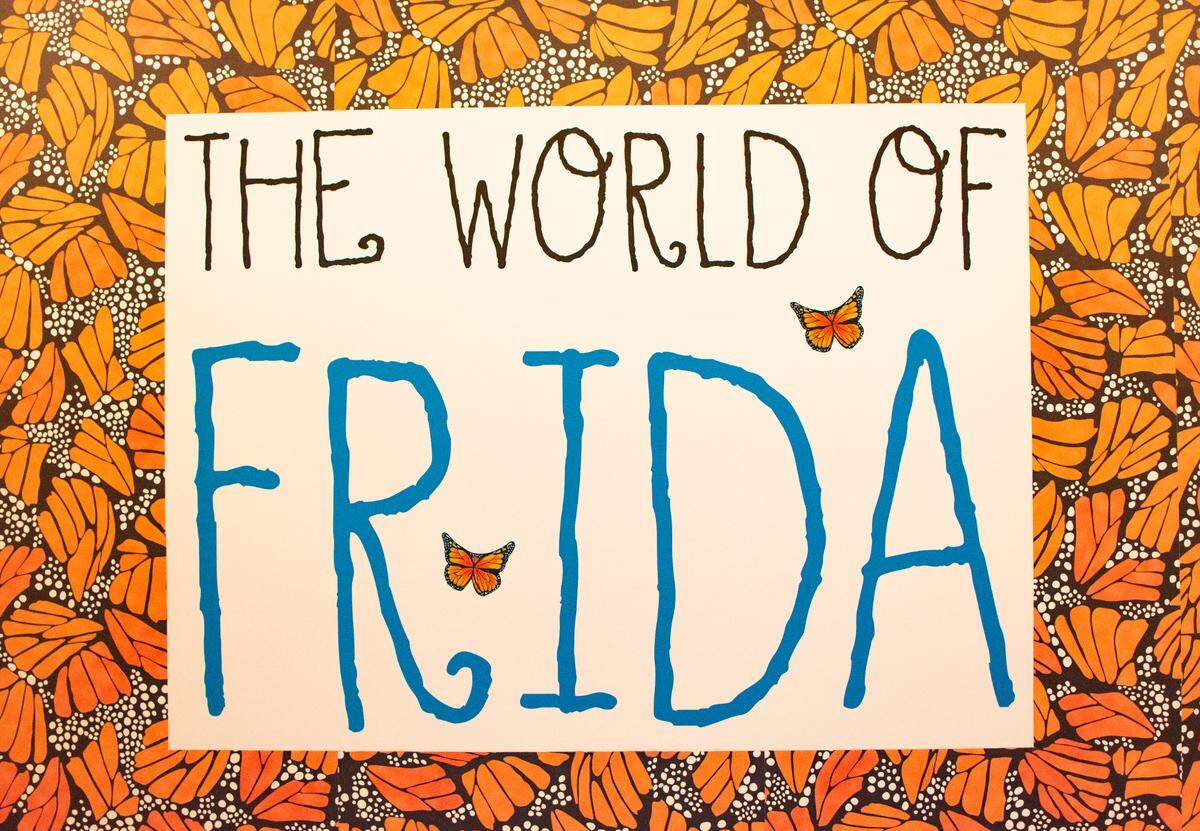 THE WORLD OF
FRIDA